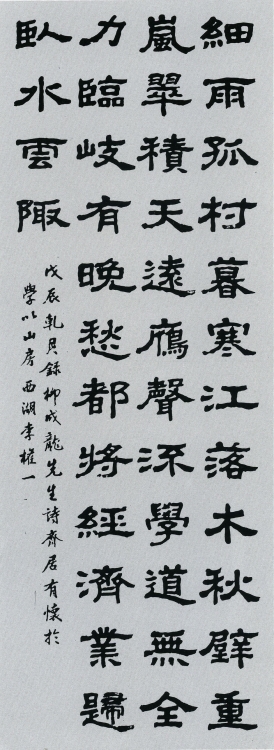 細雨孤村暮寒江落木秋壁重
嵐翠積天遠鴈聲流學道無全
力臨岐有晚愁都將經濟業歸
臥水雲陬
戊辰乾月錄柳成龍先生詩齋居有懷於
學以山房西湖李權一